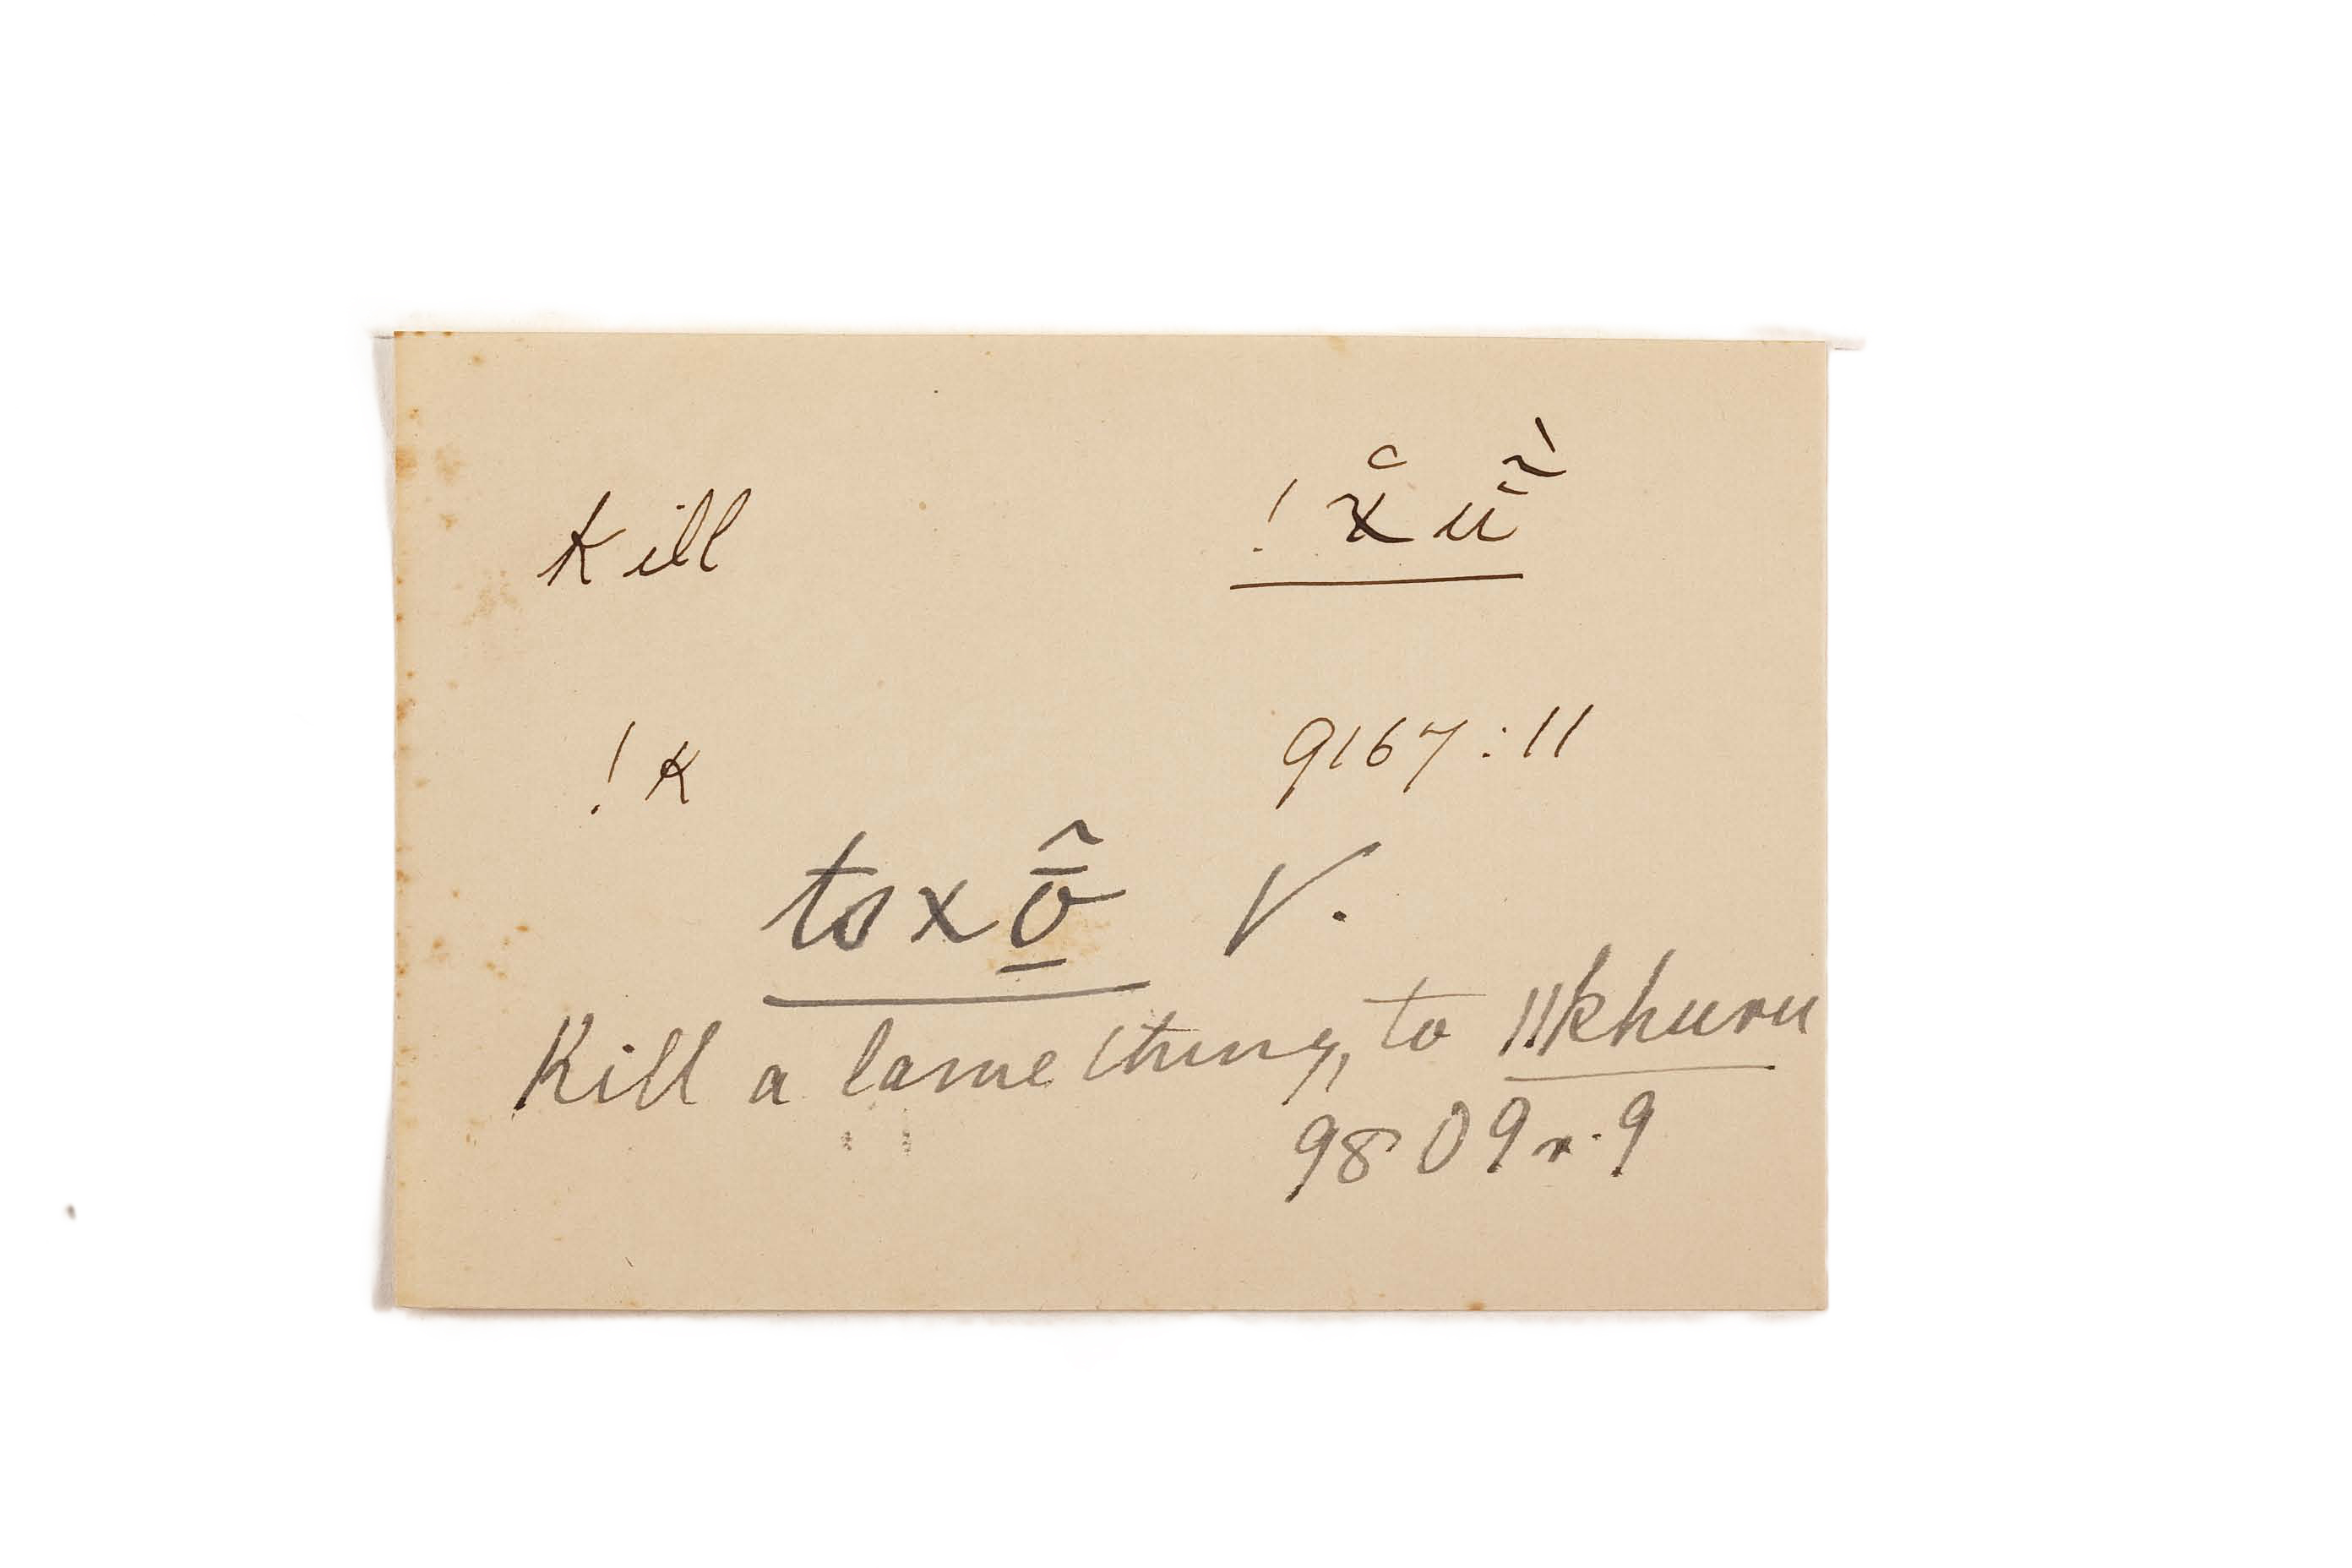 Kill !x̆ũ̄́
!k 9167:11
tsxō̠̂ V.
Kill a lame thing, to ||khuru
9809r.9